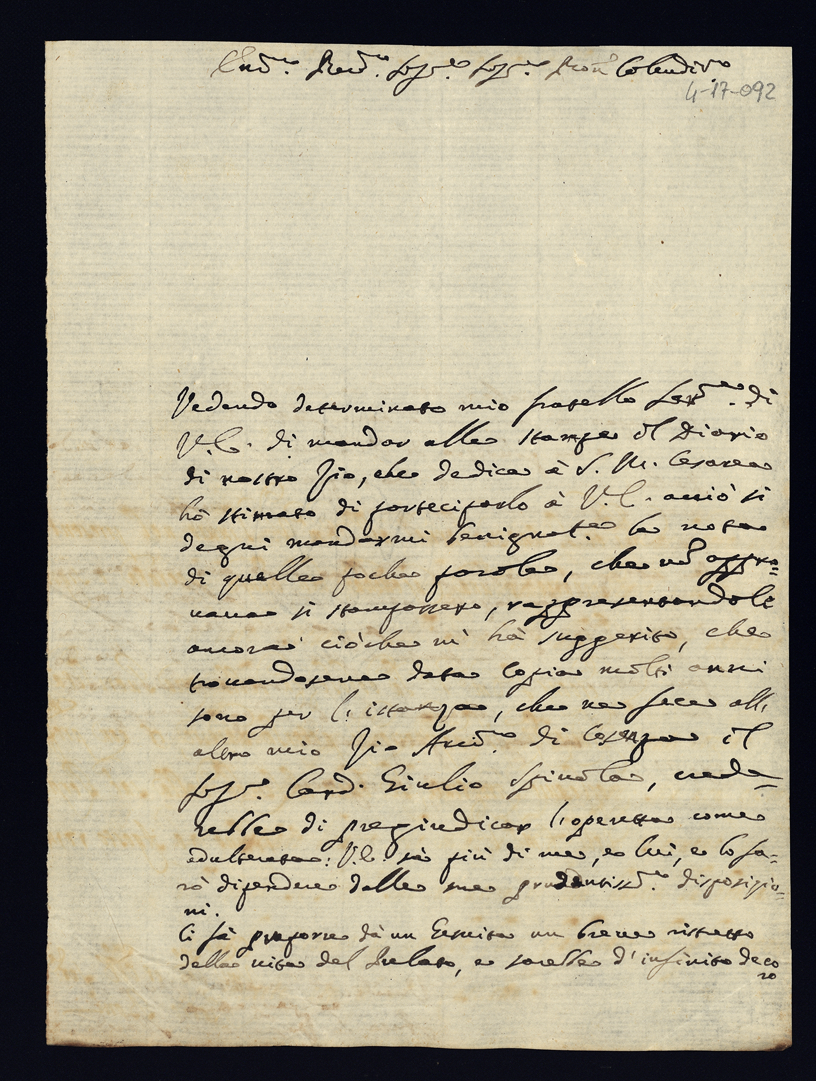 Em.mo Rev.mo Sig.re Sig.re Pron Colendis.mo
4-17-092
Vedendo determinato mio fratello Ser.re di
V.E. di mandar alle stampe il Diario
di nostro Zio, che dedica à S. M. Cesarea
hò stimato di parteciparlo à V.E. acciò si
degni mandarmi benignam.te la nota
di quelle poche parole, che nõ appro=
vava si stampassero, rappresentandole
ancora ciòche m' hà suggerito, che
trovandosene data copia molti anni
sono per l'istanza, che ne fece all'
altro mio Zio Arciv.o di Cosenza il
Sig.re Card. Giulio Spinola, crede-
rebbe di pregiudicar l'operetta come
adulterata: V.E. sà più di me, e lui, e lo fa-
rò dipendere dalle sue prudentiss.e disposizio=
ni.
Ci fà proporre dà un Gesuita un breve ristretto
della vita del Prelato, e sarebbe d'infinito deco
ro